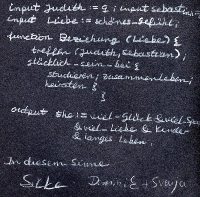 input Judith := ♀; input sebastian
input Liebe := schönes_Gefühl;
function Beziehung (Liebe) {
treffen (Judith, Sebastian);
glücklich_sein_bei {
studieren; zusammenleben;
heiraten {
}
}
output the := viel-Glück & viel-Spa
& viel-Liebe & Kinder
& langes Leben.
In diesem Sinne
Silke
+ Svenja